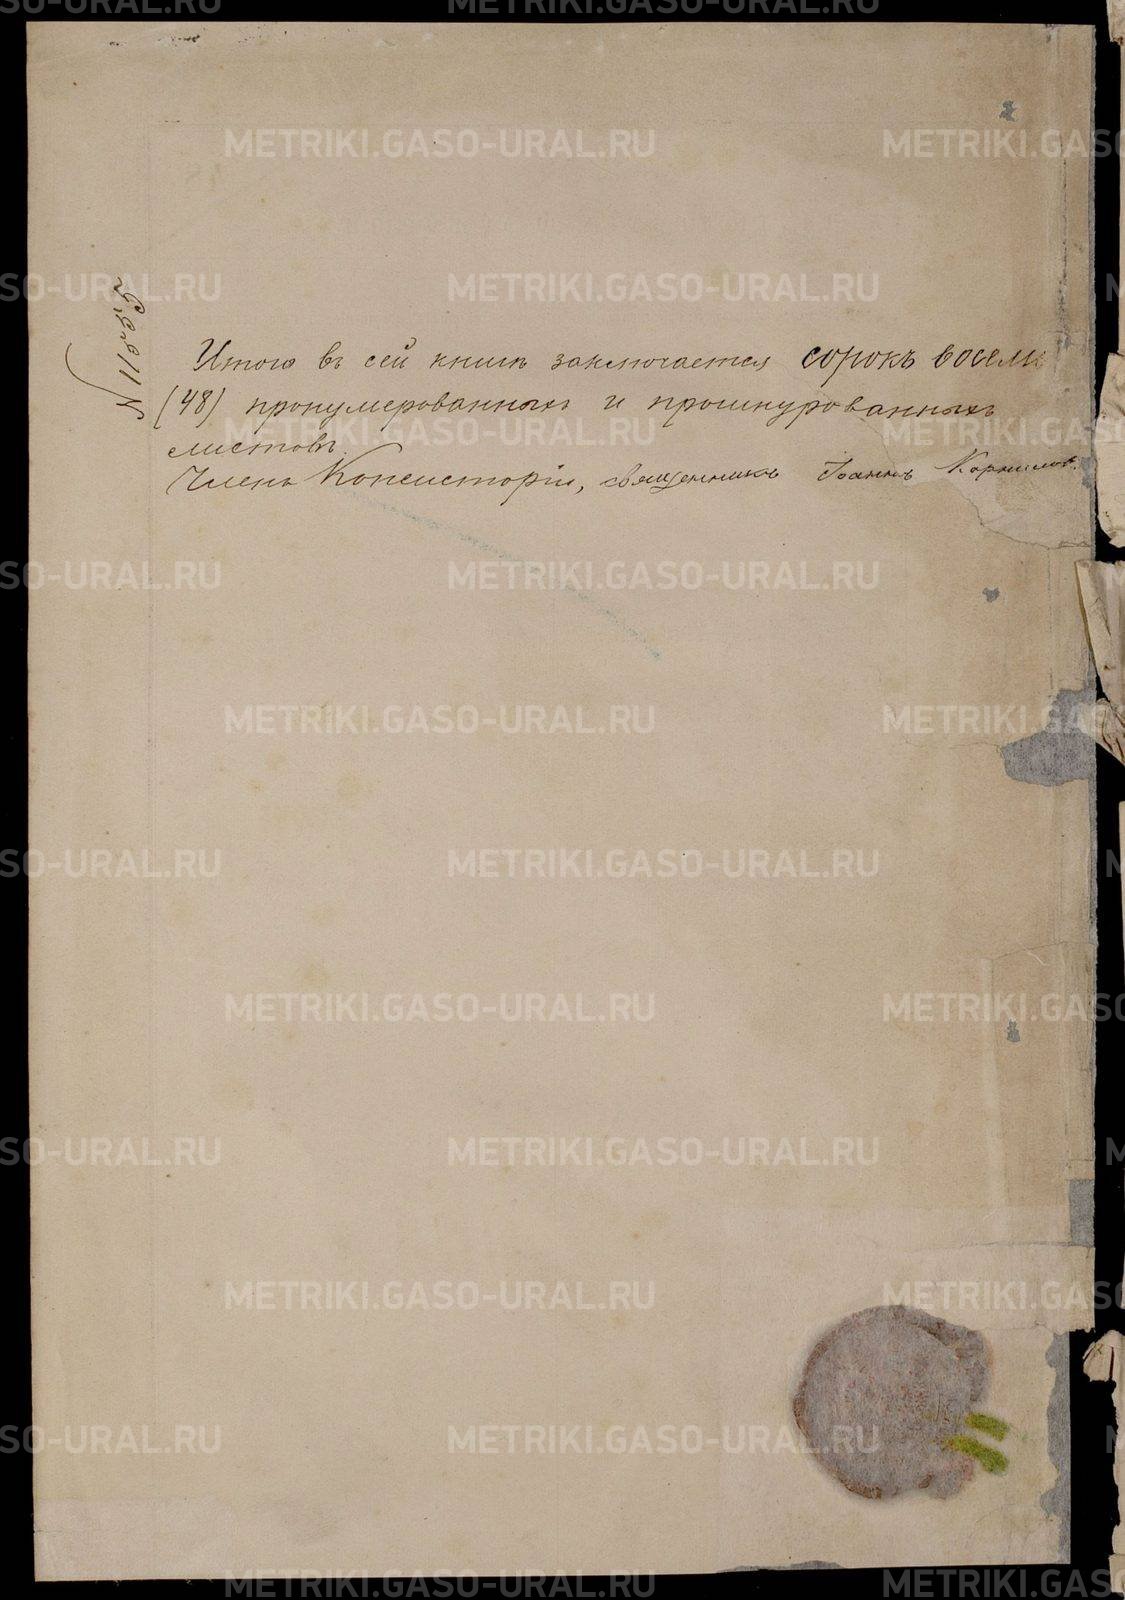 Итого въ сей книгѣ заключается сорокъ восемь
(48) пронумерованныхъ и прошнурованныхъ
листовъ.
Членъ Консисторіи, священникъ Іоаннъ Корнилов.
METRIKI.GASO-URAL.RU